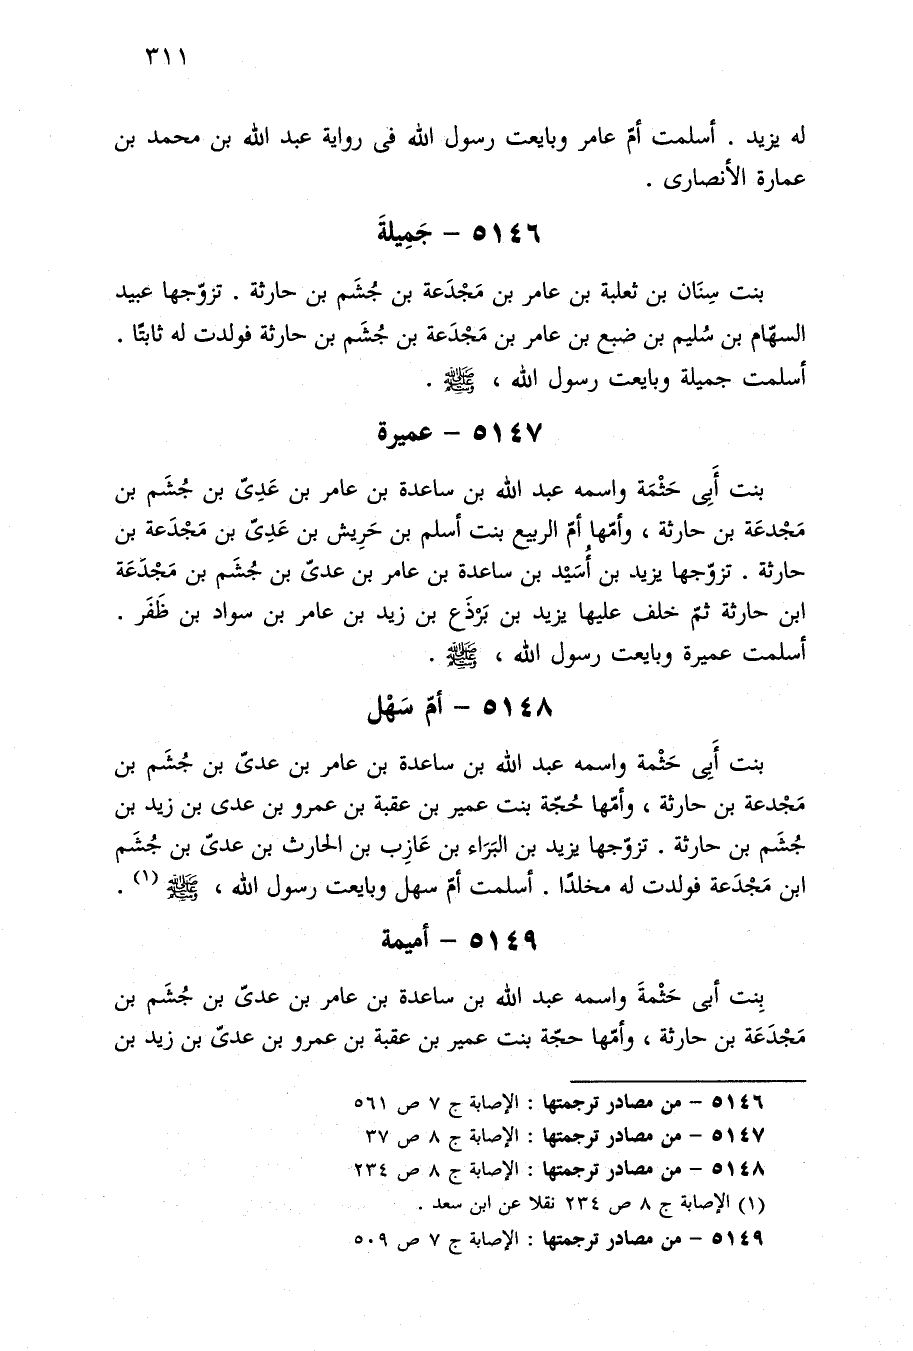 ٣١١
له يزيد . أسلمت أمّ عامر وبايعت رسول الله فى رواية عبد الله بن محمد بن
عمارة الأنصارى .
٥١٤٦ – جَمِيلةَ
بنت سِنَان بن ثعلبة بن عامر بن مَجْدَعة بن جُشَم بن حارثة . تزوّجها عبيد
السهّام بن سُليم بن ضبع بن عامر بن مَجْدَعة بن جُشَم بن حارثة فولدت له ثابتًا .
أسلمت جميلة وبايعت رسول الله ، ﷺ .
٥١٤٧ – عميرة
بنت أَبِى حَثْمَة واسمه عبد الله بن ساعدة بن عامر بن عَدِىّ بن جُشَم بن
مَجْدعَة بن حارثة ، وأمّها أمّ الربيع بنت أسلم بن حَرِيش بن عَدِىّ بن مَجْدَعة بن
حارثة . تزوّجها يزيد بن أُسَيْد بن ساعدة بن عامر بن عدىّ بن جُشَم بن مَجْدَعَة
ابن حارثة ثمّ خلف عليها يزيد بن بَرْذَع بن زيد بن عامر بن سواد بن ظَفَر .
أسلمت عميرة وبايعت رسول الله ، ﷺ .
٥١٤٨ – أمّ سَهْل
بنت أَبِى حَثْمة واسمه عبد الله بن ساعدة بن عامر بن عدىّ بن جُشَم بن
مَجْدعة بن حارثة ، وأمّها حُجّة بنت عمير بن عقبة بن عمرو بن عدى بن زيد بن
جُشَم بن حارثة . تزوّجها يزيد بن البَرَاء بن عَازِب بن الحارث بن عدىّ بن جُشَم
ابن مَجْدَعة فولدت له مخلدًا . أسلمت أمّ سهل وبايعت رسول الله ، ﷺ (١) .
٥١٤٩ – أميمة
بِنت أبى حَثْمةَ واسمه عبد الله بن ساعدة بن عامر بن عدىّ بن جُشَم بن
مَجْدَعَة بن حارثة ، وأمّها حجّة بنت عمير بن عقبة بن عمرو بن عدىّ بن زيد بن
٥١٤٦ – من مصادر ترجمتها : الإصابة ج ٧ ص ٥٦١
٥١٤٧ – من مصادر ترجمتها : الإصابة ج ٨ ص ٣٧
٥١٤٨ – من مصادر ترجمتها : الإصابة ج ٨ ص ٢٣٤
(١) الإصابة ج ٨ ص ٢٣٤ نقلا عن ابن سعد .
٥١٤٩ – من مصادر ترجمتها : الإصابة ج ٧ ص ٥٠٩